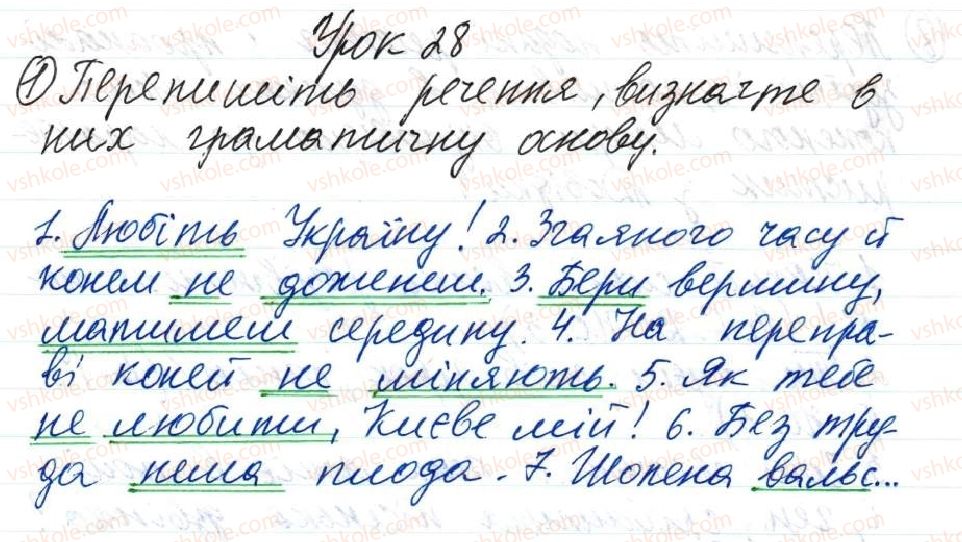 Урок 28
① Перепишіть речення, визначте в
них граматичну основу.
1. Любіть Україну! 2. Згаяного часу й
конем не доженеш. 3. Бери вершину,
матимеш середину. 4. На перепра-
ві коней не міняють. 5. Як тебе
не любити, Києве мій! 6. Без тру-
да нема плода. 7. Шопена вальс...